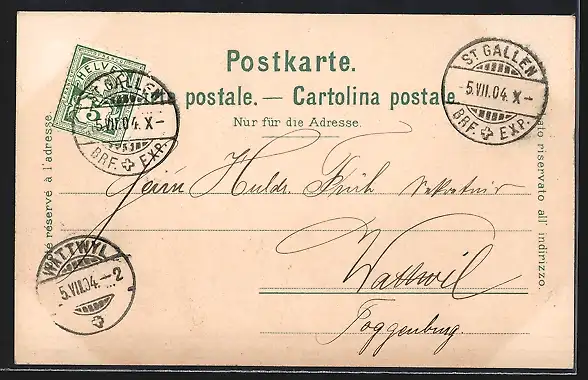 Postkarte.
postale. — Cartolina postale.
Nur für die Adresse.
HELVE
5
ST. GALLEN
5.VII.04. X-
BRF. EXP.
ST. GALLEN
5.VII.04. X-
BRF. EXP.
réservé à l'adresse.
riservato all' indirizzo.
Herrn Huldr. Früh Sekretär
Wattwil
Toggenburg.
WATTWYL
5.VII.04.-2